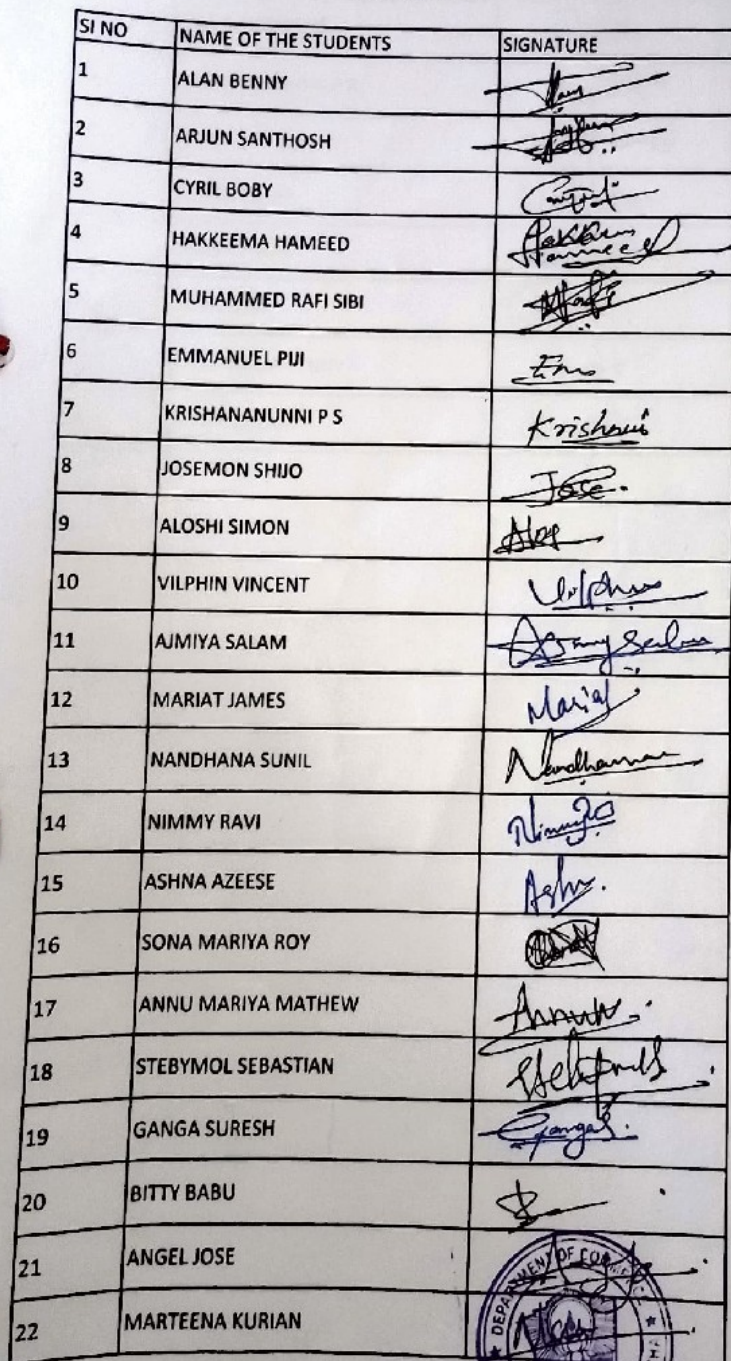 SI NO NAME OF THE STUDENTS SIGNATURE
1 ALAN BENNY
2 ARJUN SANTHOSH
3 CYRIL BOBY
4 HAKKEEMA HAMEED Hakkeem Hameed
5 MUHAMMED RAFI SIBI
6 EMMANUEL PIJI Em
7 KRISHANANUNNI P S
8 JOSEMON SHIJO Jose.
9 ALOSHI SIMON
10 VILPHIN VINCENT
11 AJMIYA SALAM
12 MARIAT JAMES Mariat
13 NANDHANA SUNIL Nandhana
14 NIMMY RAVI
15 ASHNA AZEESE
16 SONA MARIYA ROY
17 ANNU MARIYA MATHEW
18 STEBYMOL SEBASTIAN
19 GANGA SURESH
20 BITTY BABU
21 ANGEL JOSE
22 MARTEENA KURIAN
DEPARTMENT OF